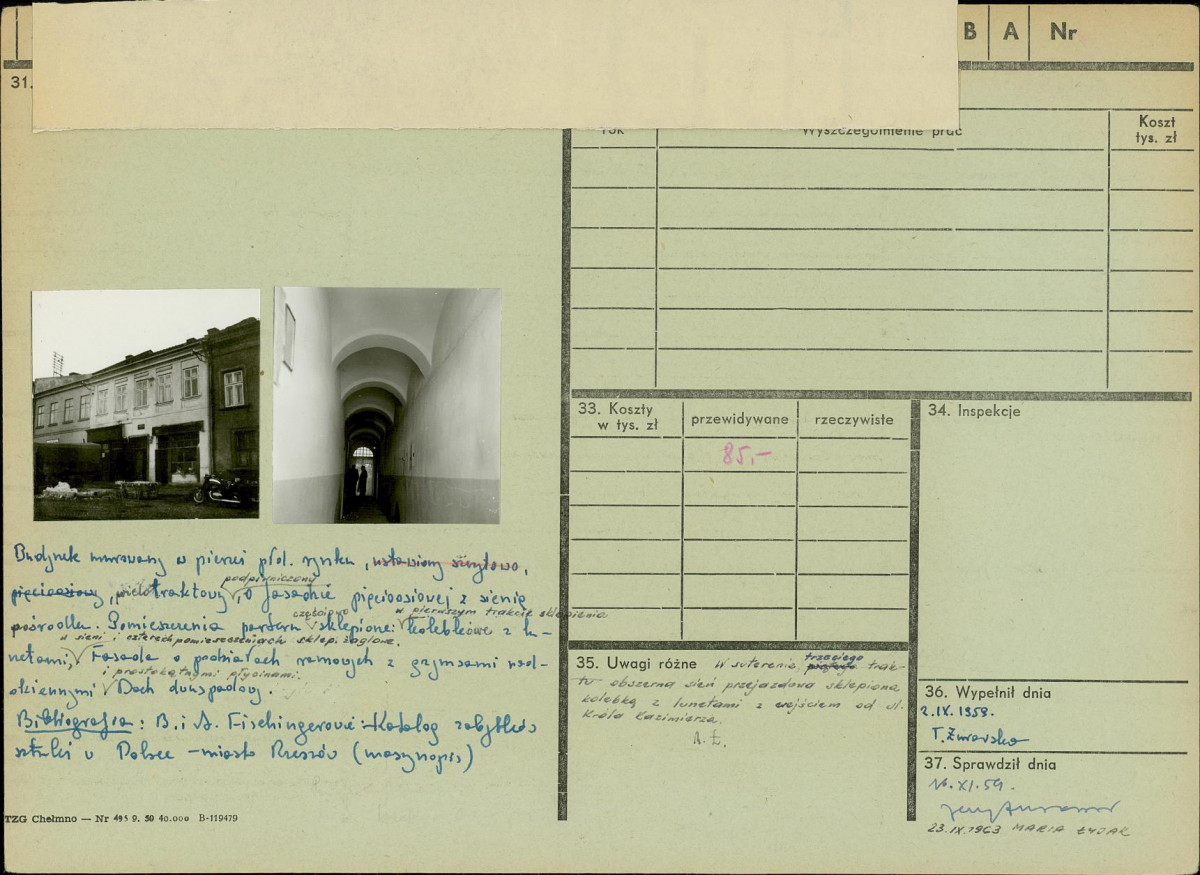 B A Nr
31.
rok Wyszczególnienie prac Koszt
tys. zł
Budynek murowany w pierzei płd. rynku, ustawiony szczytowo,
podpiwniczony
pięcioosiowy, wielotraktowy, o fasadzie pięcioosiowej z sienią
częściowo w pierwszym trakcie sklepienie
pośrodku. Pomieszczenia parteru sklepione: kolebkowe z lu-
w sieni i czterech pomieszczeniach sklep. żaglowe.
netami, Fasada o podziałach ramowych z gzymsami nad-
i prostokątnymi płycinami.
okiennymi Dach dwuspadowy.
Bibliografia: B. i A. Fischingerowie: Katalog zabytków
sztuki w Polsce – miasto Rzeszów (maszynopis)
TZG Chełmno — Nr 495 9. 50 40.000 B-119479
33. Koszty
w tys. zł
przewidywane
rzeczywiste
85,-
34. Inspekcje
35. Uwagi różne W suterenie, trzeciego trak-
tu obszerna sień przejazdowa sklepiona
kolebką z lunetami z wejściem od ul.
Króla Kazimierza.
36. Wypełnił dnia
2.IX.1959.
T. Żurawska
37. Sprawdził dnia
16.XI.59.
23.IX.1963 MARIA ŁYJAK